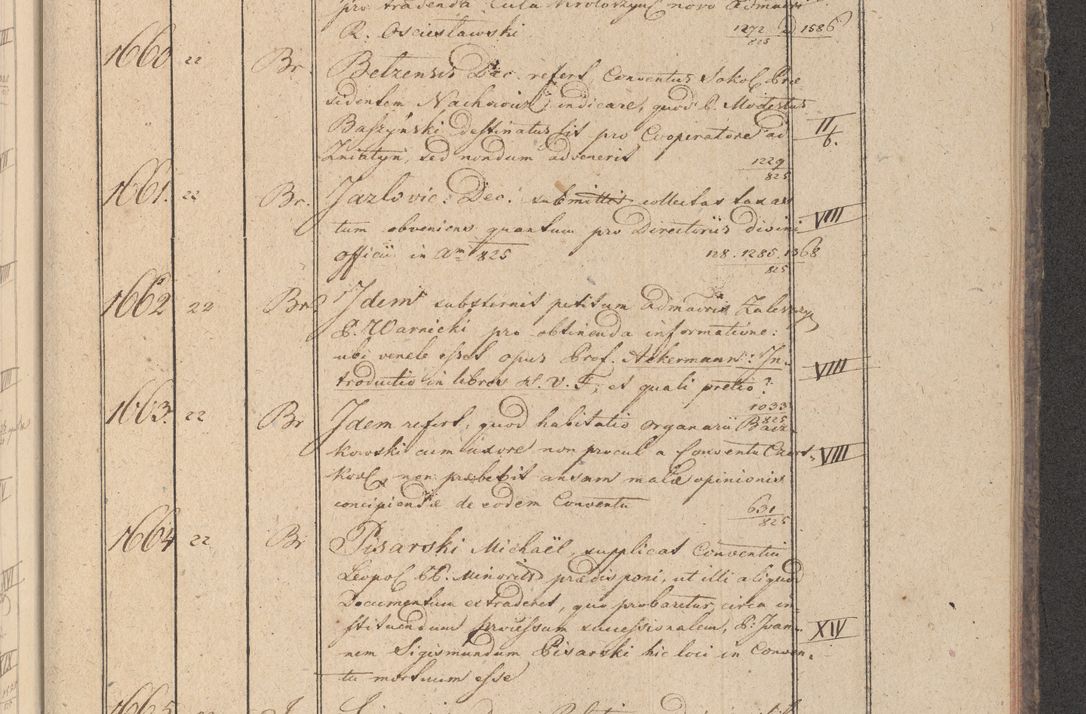 pro tradenda Cura novo Admdo
R. Oscieslawski 1272 D 1586
825
1660 22 Br. Belzensis Dec. refert, Conventus Sokol. Præ-
sidentem indicare, quod P. Modestus
Baszyński destinatus sit pro Cooperatore ad II/6.
Zniatyn, sed nondum advenerit 1229
825
1661. 22 Br. Jazlovic: Dec. submittit collectas taxas
tum obveniens quantum pro Directoriis divini VIII
officii in Am 825 128. 1285. 1368
825
1662 22 Br. Idem substernit petitum
P. Warnicki pro obtinenda informatione:
ubi venale esset opus Prof. Ackermann: In-
troductio in libros V. F, et quali pretio? VIII
1033
825
1663. 22 Br Idem refert, quod habitatio organarii
kowski cum uxore non procul a Conventu Czort- VIII
kov. non præbebit ansam malæ opinionis
concipiendæ de eodem Conventu 631
825
1664 22 Br Pisarski Michaël, supplicat Conventui
Leopol. PP. Minorit. prædisponi, ut illi aliquod
Documentum extraderet, quo probaretur, circa in-
stituendum processum successionalem, P. Joan- XIV
nem Sigismundum Pisarski hic loci in Conven-
tu mortuum esse
1665